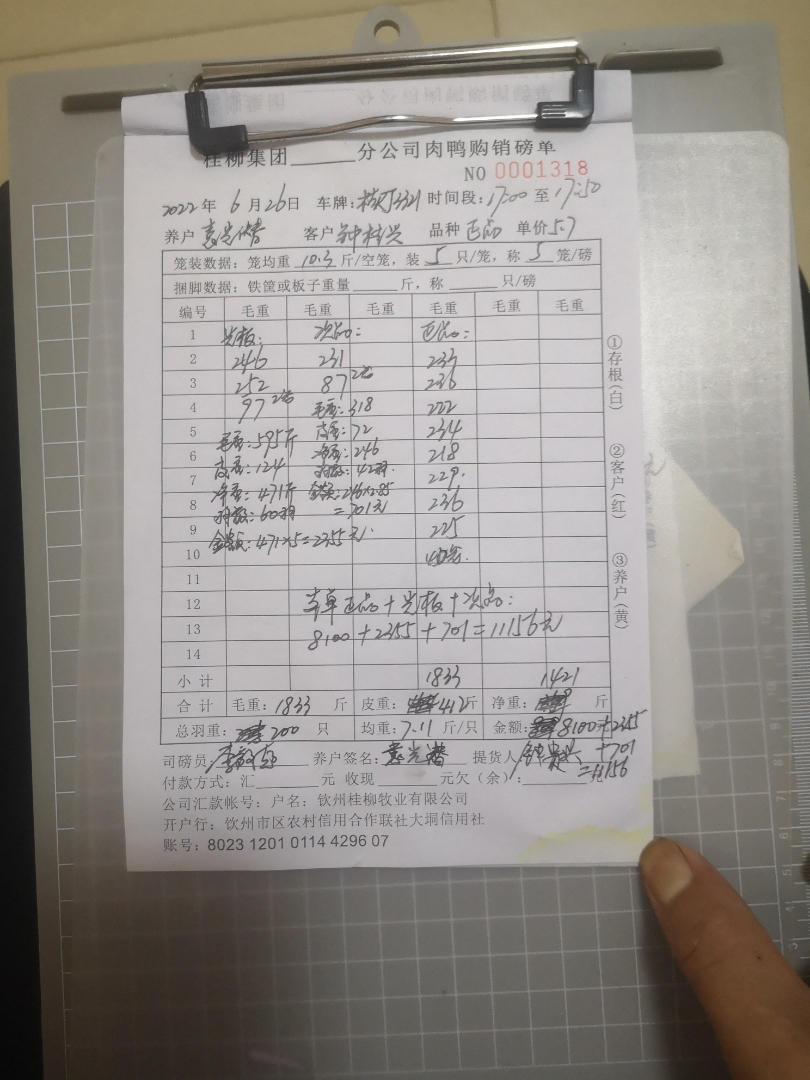 桂柳集团______分公司肉鸭购销磅单
NO 0001318
2022年 6月26日 车牌: 时间段:17:00至17:50
养户 客户 钟桂兴 品种 正品 单价5.7
笼装数据：笼均重 10.3 斤/空笼，装 5 只/笼，称 5 笼/磅
捆脚数据：铁筐或板子重量______斤，称______只/磅
编号 毛重 毛重 毛重 毛重 毛重 毛重
1 光板: 次品: 正品:
2 246 231 233
3 252 87 2笼 236
4 97 2笼 毛重:318 222
5 毛重:595斤 皮重:72 234
6 皮重:124 净重:246 218
7 净重:471斤 羽数:42羽. 229.
8 羽数:60羽 金额:246×2.85 236
=701元
9 金额:471×5=2355元. 225
10
11
12 车单正品+光板+次品:
13 8100+2355+701=11156元
14
小计 1833 1421
合计 毛重:1833 斤 皮重: 412斤 净重: 斤
总羽重: 200 只 均重:7.11 斤/只 金额: 8100+2355
+701
=11156
司磅员 养户签名: 提货人
付款方式：汇______元 收现______元欠（余）:______元
公司汇款帐号：户名：钦州桂柳牧业有限公司
开户行：钦州市区农村信用合作联社大垌信用社
账号：8023 1201 0114 4296 07
①存根(白)
②客户(红)
③养户(黄)